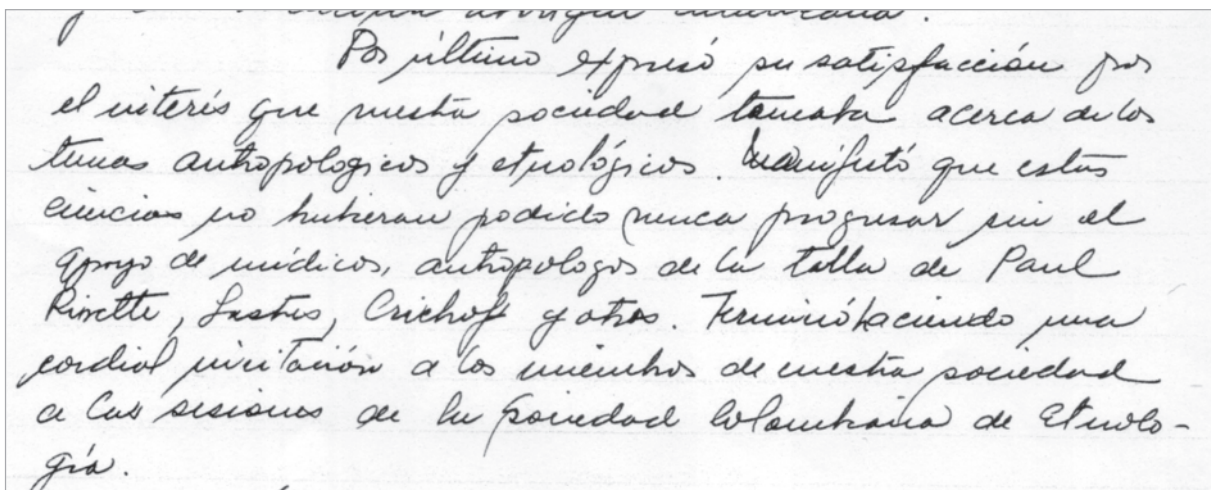 aborigen americana.
Por último expresó su satisfacción por
el interés que nuestra sociedad tomaba acerca de los
temas antropologicos y etnológicos. Manifestó que estas
ciencias no hubieran podido nunca progresar sin el
apoyo de médicos, antropologos de la talla de Paul
Rivette, Lastres, Crichoff y otros. Terminó haciendo una
cordial invitación a los miembros de nuestra sociedad
a las sesiones de la Sociedad Colombiana de Etnolo-
gía.